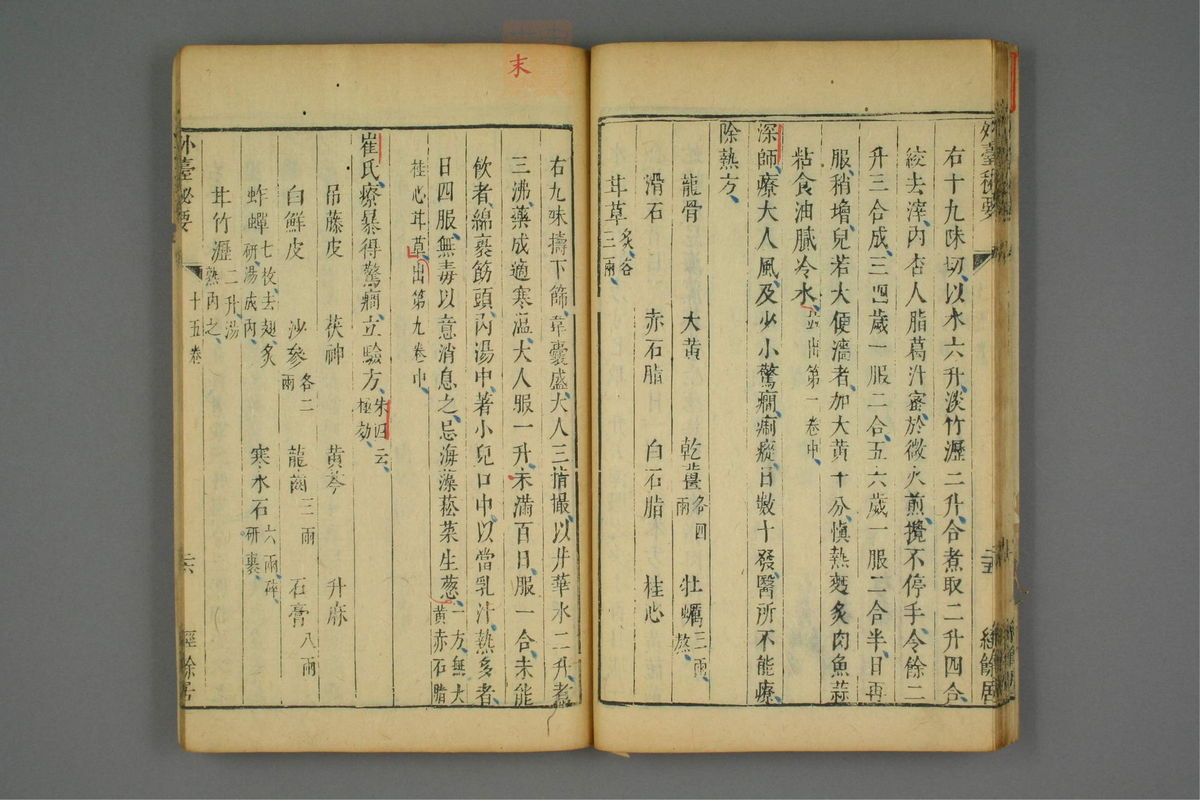 外臺秘要
右十九味切以水六升淡竹瀝二升合煮取二升四合
絞去滓內杏人脂葛汁蜜於微火煎攪不停手令餘二
升三合成三四歲一服二合五六歲一服二合半日再
服稍增兒若大便濇者加大黃十分慎熱麪炙肉魚蒜
粘食油膩冷水並出第一卷中
深師療大人風及少小驚癇瘈瘲日數十發醫所不能療
除熱方
龍骨 大黃 乾薑各四兩 牡蠣三兩熬
滑石 赤石脂 白石脂 桂心
甘草炙各三兩
右九味擣下篩韋囊盛大人三指撮以井華水二升煮
三沸藥成適寒溫大人服一升未滿百日服一合未能
飲者綿裹筯頭內湯中著小兒口中以當乳汁熱多者
日四服無毒以意消息之忌海藻菘菜生葱一方無大黃赤石脂
桂心甘草出第九卷中
崔氏療暴得驚癇立驗方朱四云極効
吊藤皮 茯神 黃芩 升麻
白鮮皮 沙參各二兩 龍齒三兩 石膏八兩
蚱蟬七枚去翅炙研湯成內 寒水石六兩碎研裹
甘竹瀝二升湯熟內之
外臺秘要
十五卷
二六
經餘居
末